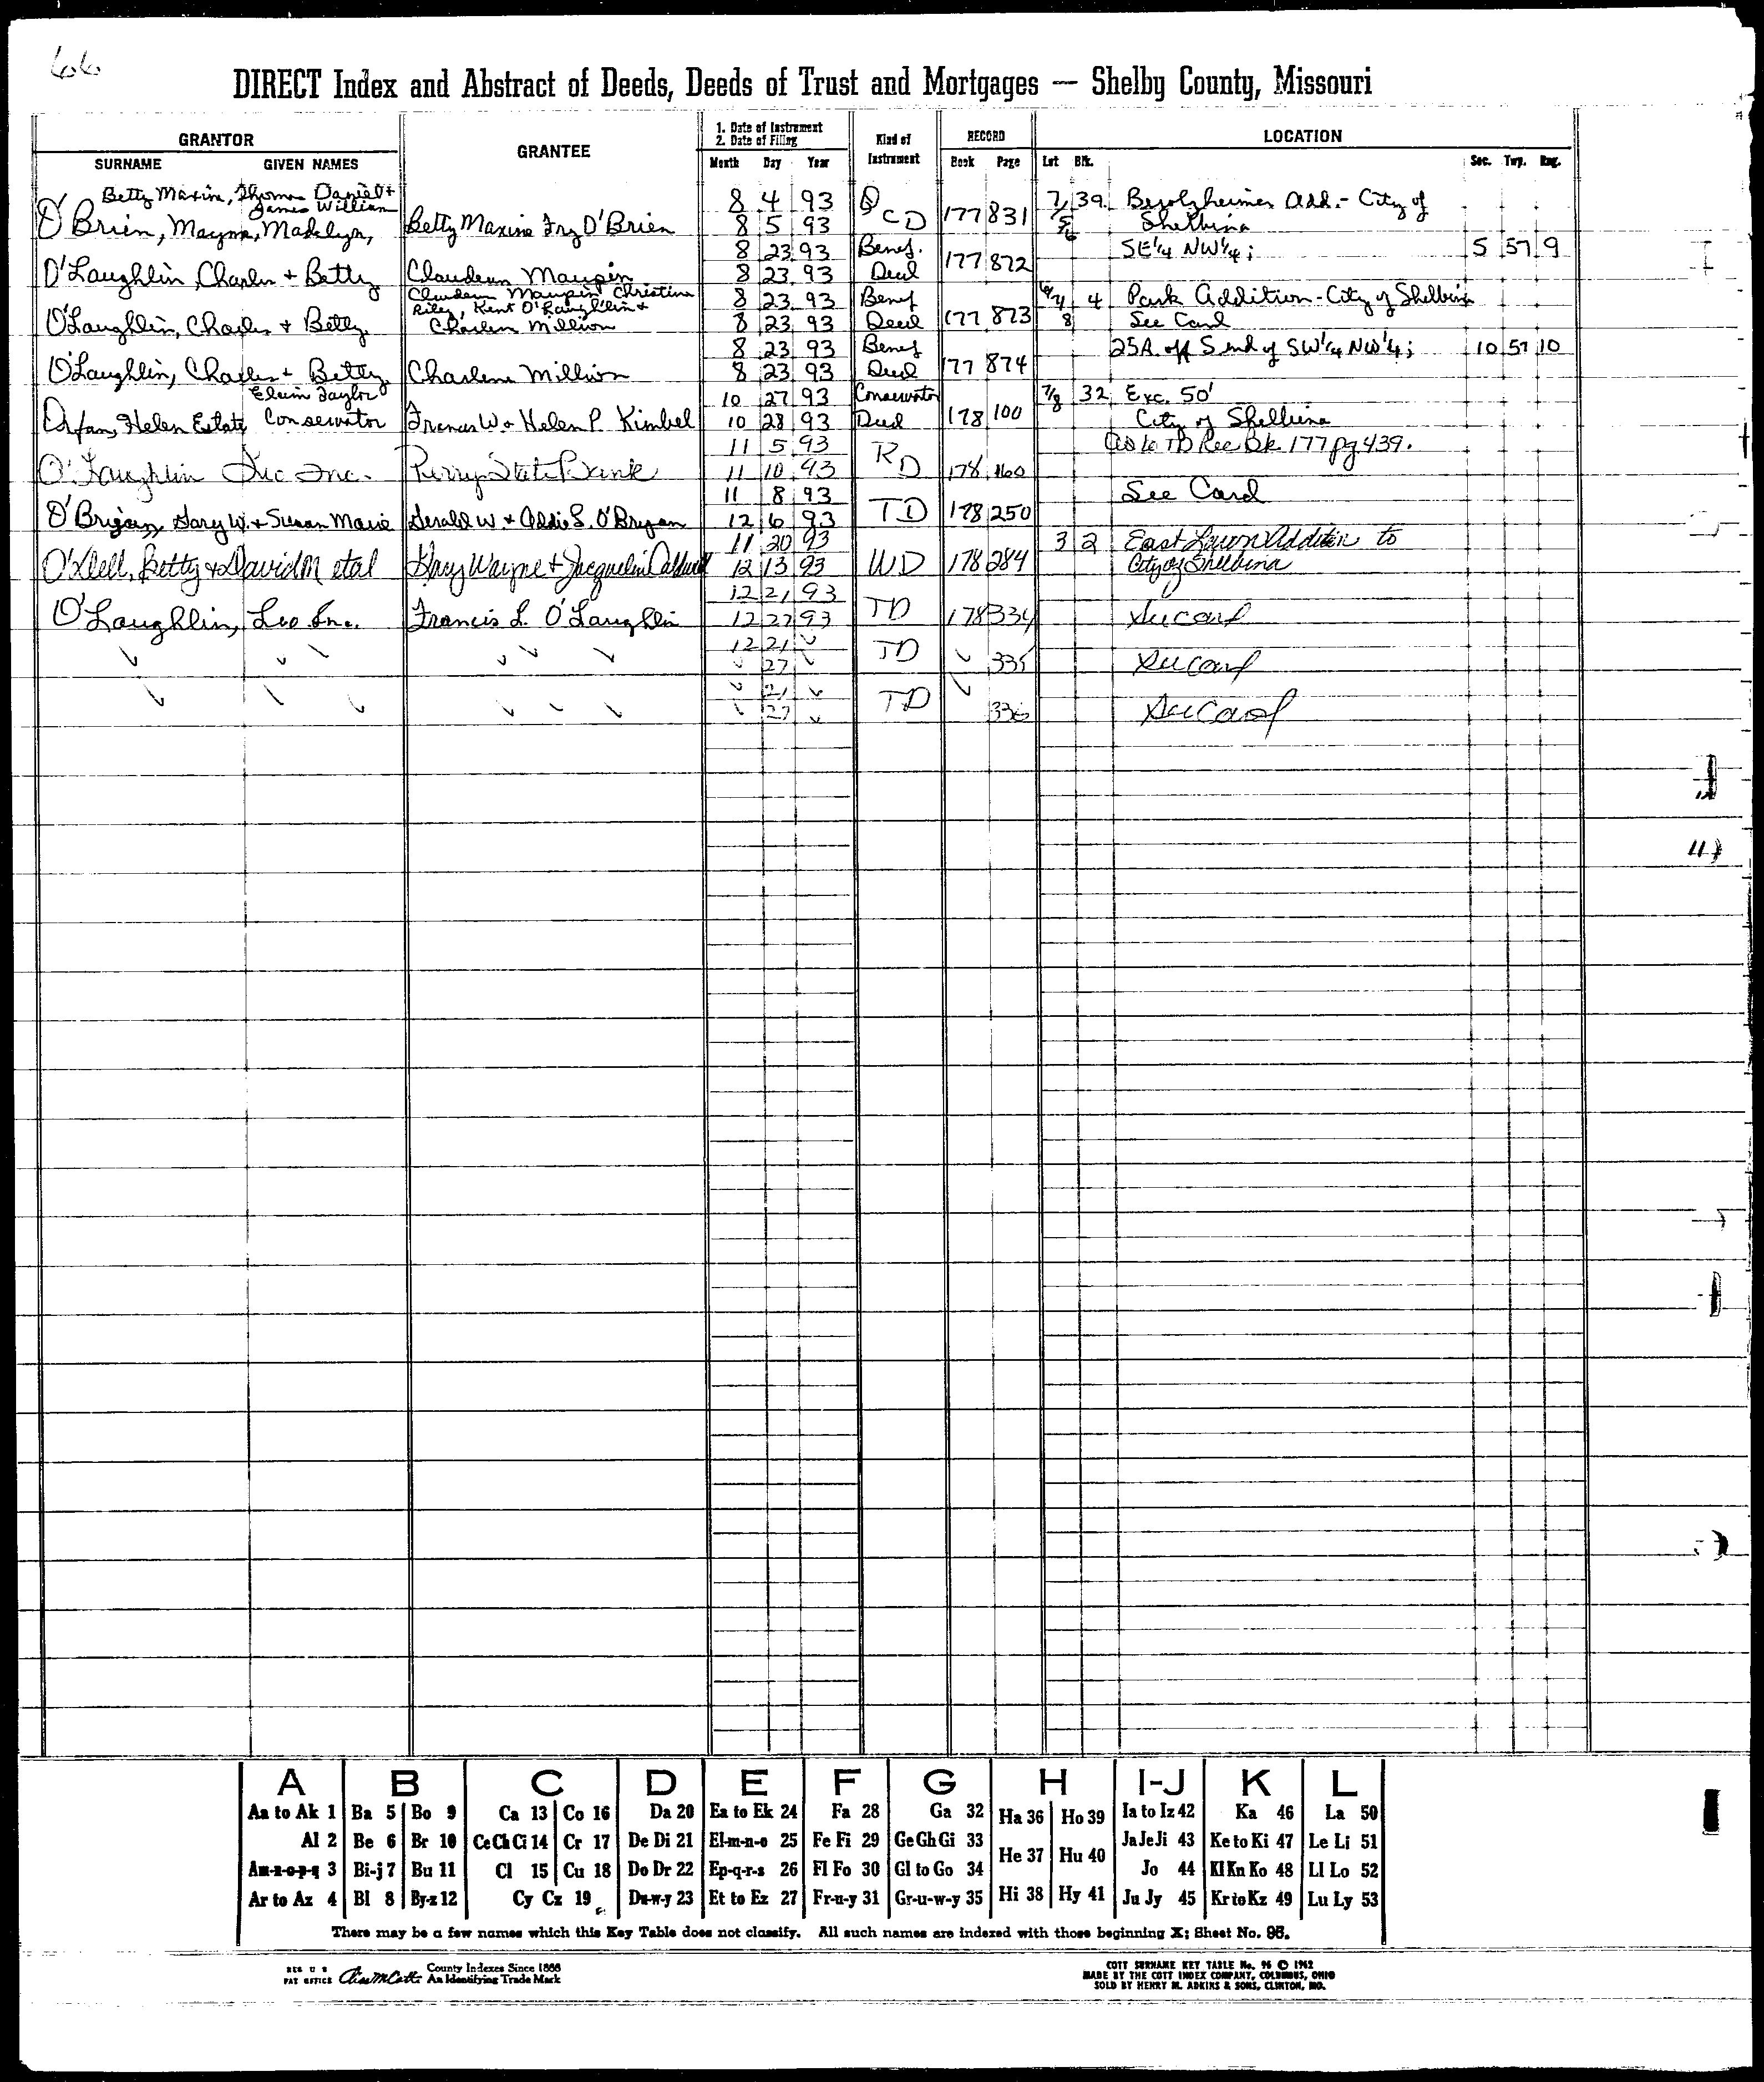 66
DIRECT Index and Abstract of Deeds, Deeds of Trust and Mortgages — Shelby County, Missouri
GRANTOR
SURNAME GIVEN NAMES
GRANTEE
1. Date of Instrument
2. Date of Filing
Month Day Year
Kind of
Instrument
RECORD
Book Page
LOCATION
Lot Blk.
Sec. Twp. Rng.
Betty Maxine, Thomas Daniel +
James William
O'Brien, Mayme, Madelyn, Betty Maxine Fry O'Brien
8 4 93
8 5 93
Q C D 177 831 7/5/6 39 Besolzheimer Add. - City of
Shelbina
O'Laughlin, Charles + Betty Claudean Maupin
8 23 93 Benef.
8 23 93 Deed 177 872 SE 1/4 NW 1/4; 5 57 9
Claudean Maupin Christina
Riley, Kent O'Laughlin +
O'Laughlin, Charles + Betty Charlene Million
8 23 93 Benef
8 23 93 Deed 177 873 4 Park Addition - City of Shelbina
8 See Card
O'Laughlin, Charles + Betty Charlene Million
8 23 93 Benef
8 23 93 Deed 177 874 25A. off S end of SW 1/4 NW 1/4; 10 57 10
Elvin Taylor
Orfan, Helen Estate Conservator Francis W. + Helen P. Kimbel
10 27 93 Conservator
10 28 93 Deed 178 100 7/8 32 Exc. 50'
City of Shelbina
O'Laughlin Inc. Perry State Bank
11 5 93
11 10 93 RD 178 160 As to TD Rec Bk 177 pg 439.
O'Bryan, Gary W. + Susan Marie Gerald W + Addie S. O'Bryan
11 8 93
12 6 93 TD 178 250 See Card
O'Dell, Betty + David M etal Gary Wayne + Jacquelin
11 20 93
12 13 93 WD 178 284 3 2 East Lawn Addition to
City of Shelbina
O'Laughlin, Leo Inc. Francis L. O'Laughlin
12 21 93
12 27 93 TD 178 334 See card
12 21 ✓
✓ 27 ✓ TD ✓ 335 See card
✓ 21 ✓
✓ 27 ✓ TD ✓ 336 See Card
A B C D E F G H I-J K L
Aa to Ak 1 Ba 5 Bo 9 Ca 13 Co 16 Da 20 Ea to Ek 24 Fa 28 Ga 32 Ha 36 Ho 39 Ia to Iz 42 Ka 46 La 50
Al 2 Be 6 Br 10 Ce Ch Ci 14 Cr 17 De Di 21 El-m-n-o 25 Fe Fi 29 Ge Gh Gi 33 He 37 Hu 40 Ja Je Ji 43 Ke to Ki 47 Le Li 51
Am-n-o-p-q 3 Bi-j 7 Bu 11 Cl 15 Cu 18 Do Dr 22 Ep-q-r-s 26 Fl Fo 30 Gl to Go 34 Jo 44 Kl Kn Ko 48 Ll Lo 52
Ar to Az 4 Bl 8 By-z 12 Cy Cz 19 Du-w-y 23 Et to Ez 27 Fr-u-y 31 Gr-u-w-y 35 Hi 38 Hy 41 Ju Jy 45 Kr to Kz 49 Lu Ly 53
There may be a few names which this Key Table does not classify. All such names are indexed with those beginning X; Sheet No. 95.
REG U S
PAT OFFICE
County Indexes Since 1888
An Identifying Trade Mark
COTT SURNAME KEY TABLE No. 96 © 1962
MADE BY THE COTT INDEX COMPANY, COLUMBUS, OHIO
SOLD BY HENRY M. ADKINS & SONS, CLINTON, MO.